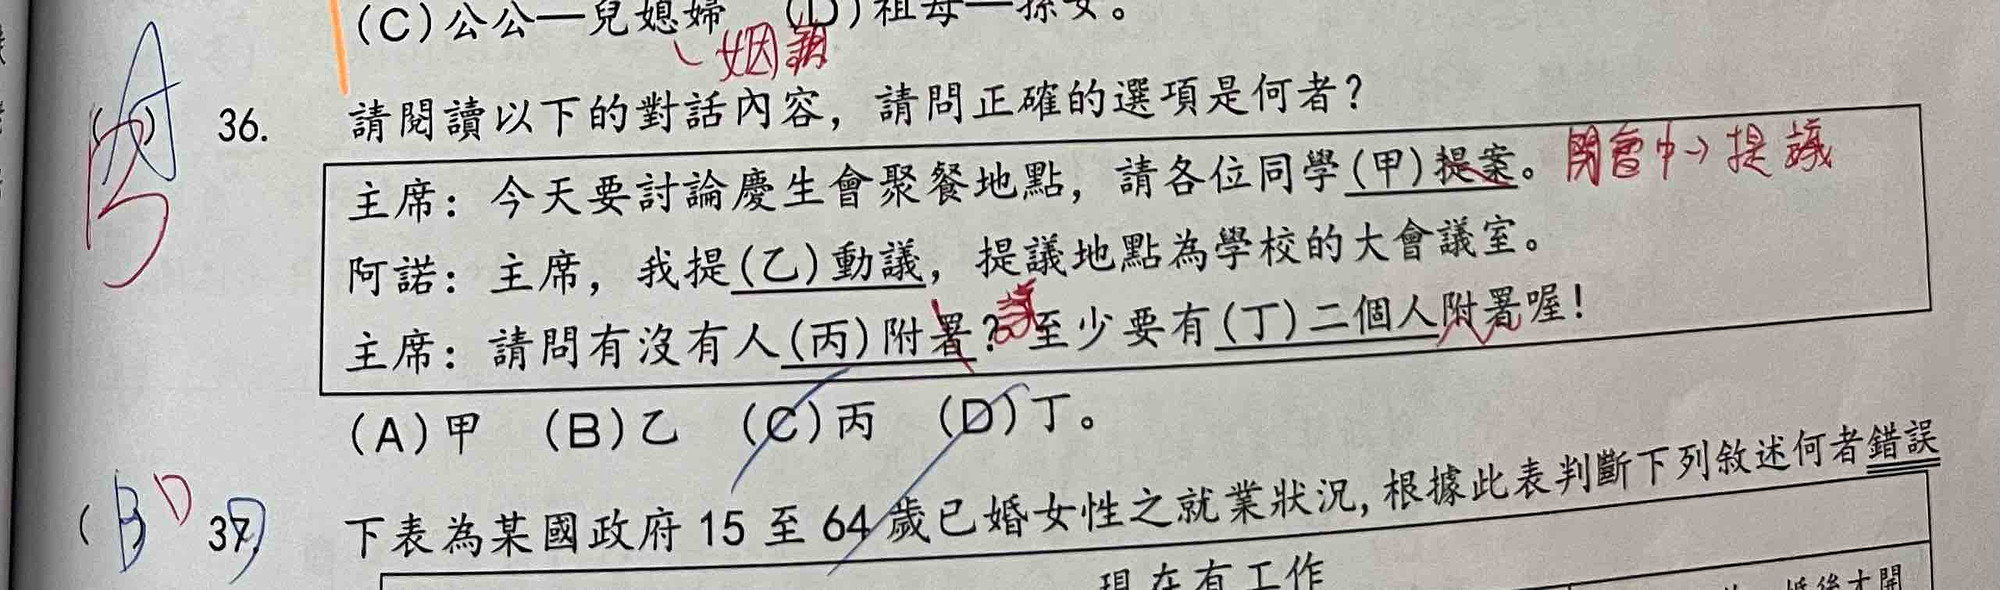 (C)公公—兒媳婦 (D)祖母—孫女。
姻親
36. 請閱讀以下的對話內容，請問正確的選項是何者？
主席：今天要討論慶生會聚餐地點，請各位同學(甲)提案。 開會中→提議
阿諾：主席，我提(乙)動議，提議地點為學校的大會議室。
主席：請問有沒有人(丙)附署？至少要有(丁)二個人附署喔！
議
(A)甲 (B)乙 (C)丙 (D)丁。
(B D 37. 下表為某國政府15至64歲已婚女性之就業狀況，根據此表判斷下列敘述何者錯誤
現在有工作
婚後才開